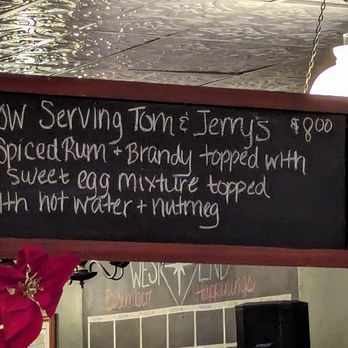 OW Serving Tom & Jerry's $8.00
Spiced Rum + Brandy topped with
sweet egg mixture topped
ith hot water + nutmeg
WEST END
December Happenings